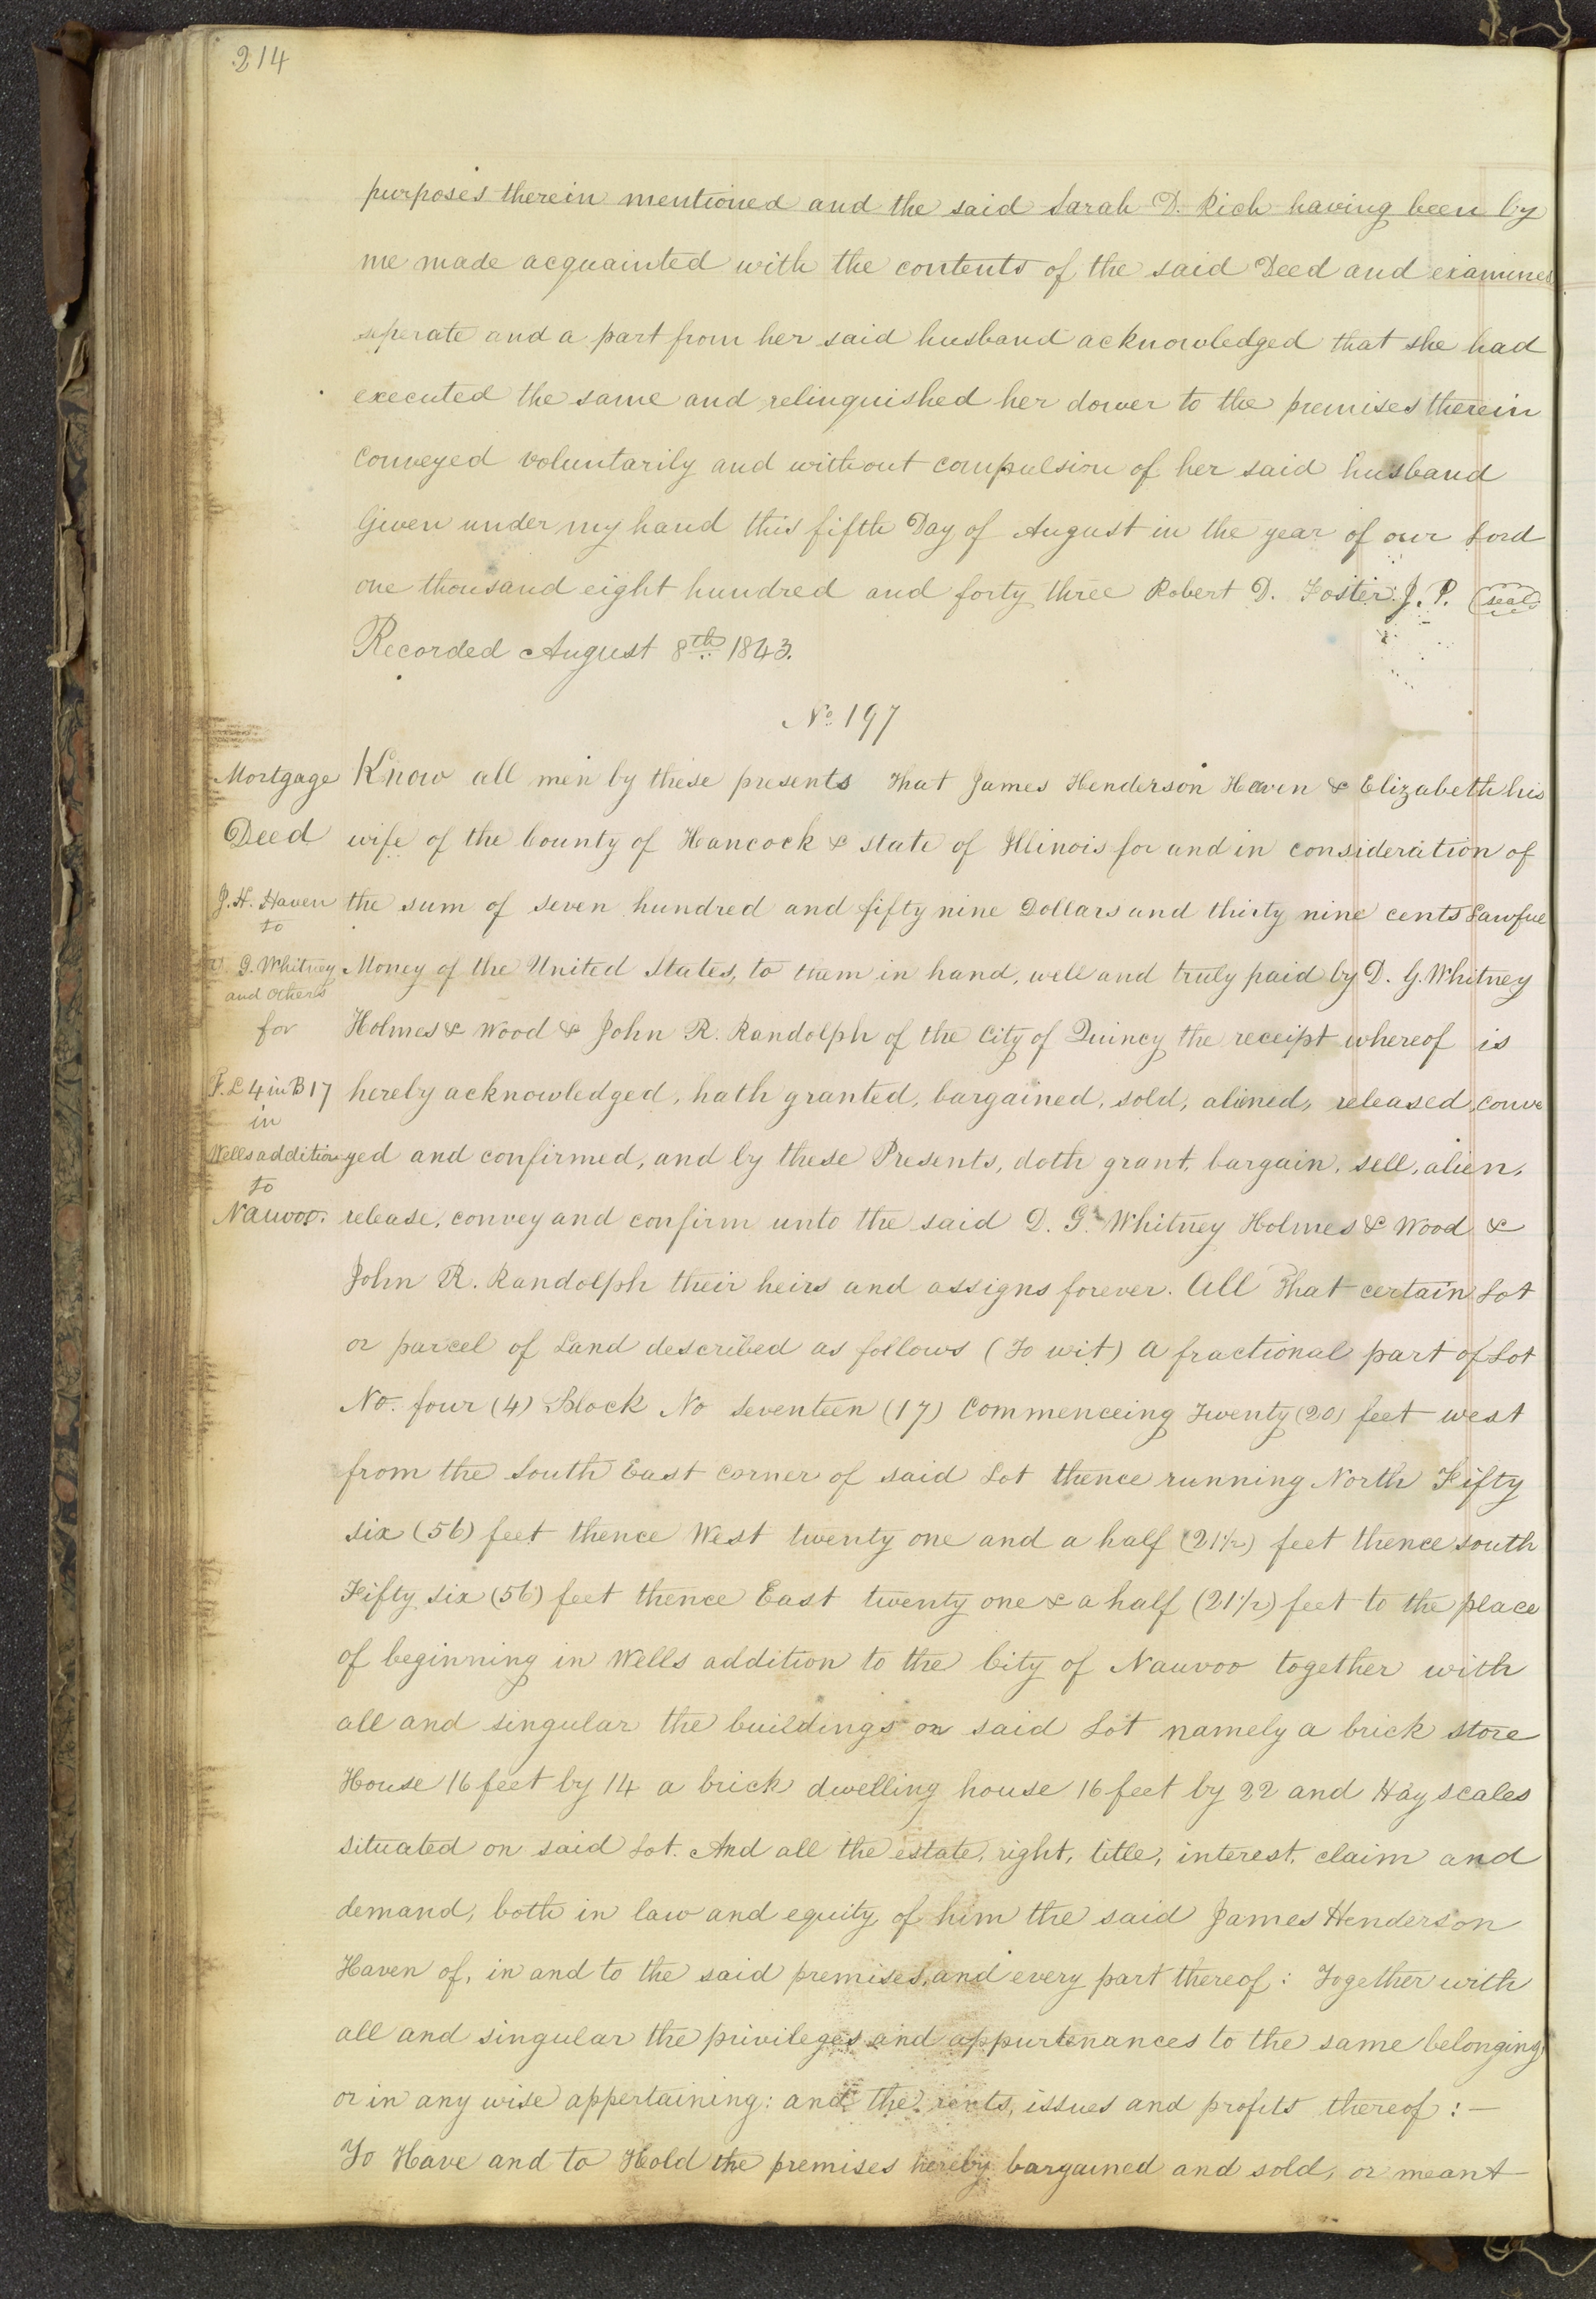 214
purposes therein mentioned and the said Sarah D. Rich having been by
me made acquainted with the contents of the said Deed and examined
seperate and a part from her said husband acknowledged that she had
executed the same and relinquished her dower to the premises therein
Conveyed voluntarily and without compulsion of her said husband
Given under my hand this fifth Day of August in the year of our Lord
one thousand eight hundred and forty three Robert D. Foster J. P. (seal)
Recorded August 8th 1843.
No 197
Mortgage
Deed
J. H. Haven
to
D. G. Whitney
and others
for
F. L 4 in B 17
in
Wells addition
to
Nauvoo.
Know all men by these presents That James Henderson Haven & Elizabeth his
wife of the County of Hancock & state of Illinois for and in consideration of
the sum of seven hundred and fifty nine Dollars and thirty nine cents Lawful
Money of the United States, to them in hand, well and truly paid by D. G. Whitney
Holmes & Wood & John R. Randolph of the City of Quincy the receipt whereof is
hereby acknowledged, hath granted, bargained, sold, aliened, released, conve
yed and confirmed, and by these Presents, doth grant, bargain, sell, alien,
release, convey and confirm unto the said D. G. Whitney Holmes & Wood &
John R. Randolph their heirs and assigns forever. All That certain Lot
or parcel of Land described as follows (To wit) A fractional part of Lot
No. four (4) Block No Seventeen (17) Commenceing Twenty (20) feet west
from the South East corner of said Lot thence running North Fifty
six (56) feet thence West twenty one and a half (21 1/2) feet thence south
Fifty six (56) feet thence East twenty one & a half (21 1/2) feet to the place
of beginning in Wells addition to the City of Nauvoo together with
all and singular the buildings on said Lot namely a brick store
House 16 feet by 14 a brick dwelling house 16 feet by 22 and Hay scales
situated on said Lot. And all the estate, right, title, interest, claim and
demand, both in law and equity of him the said James Henderson
Haven of, in and to the said premises, and every part thereof: Together with
all and singular the privileges and appurtenances to the same belonging
or in any wise appertaining: and the rents, issues and profits thereof: —
To Have and to Hold the premises hereby bargained and sold, or meant